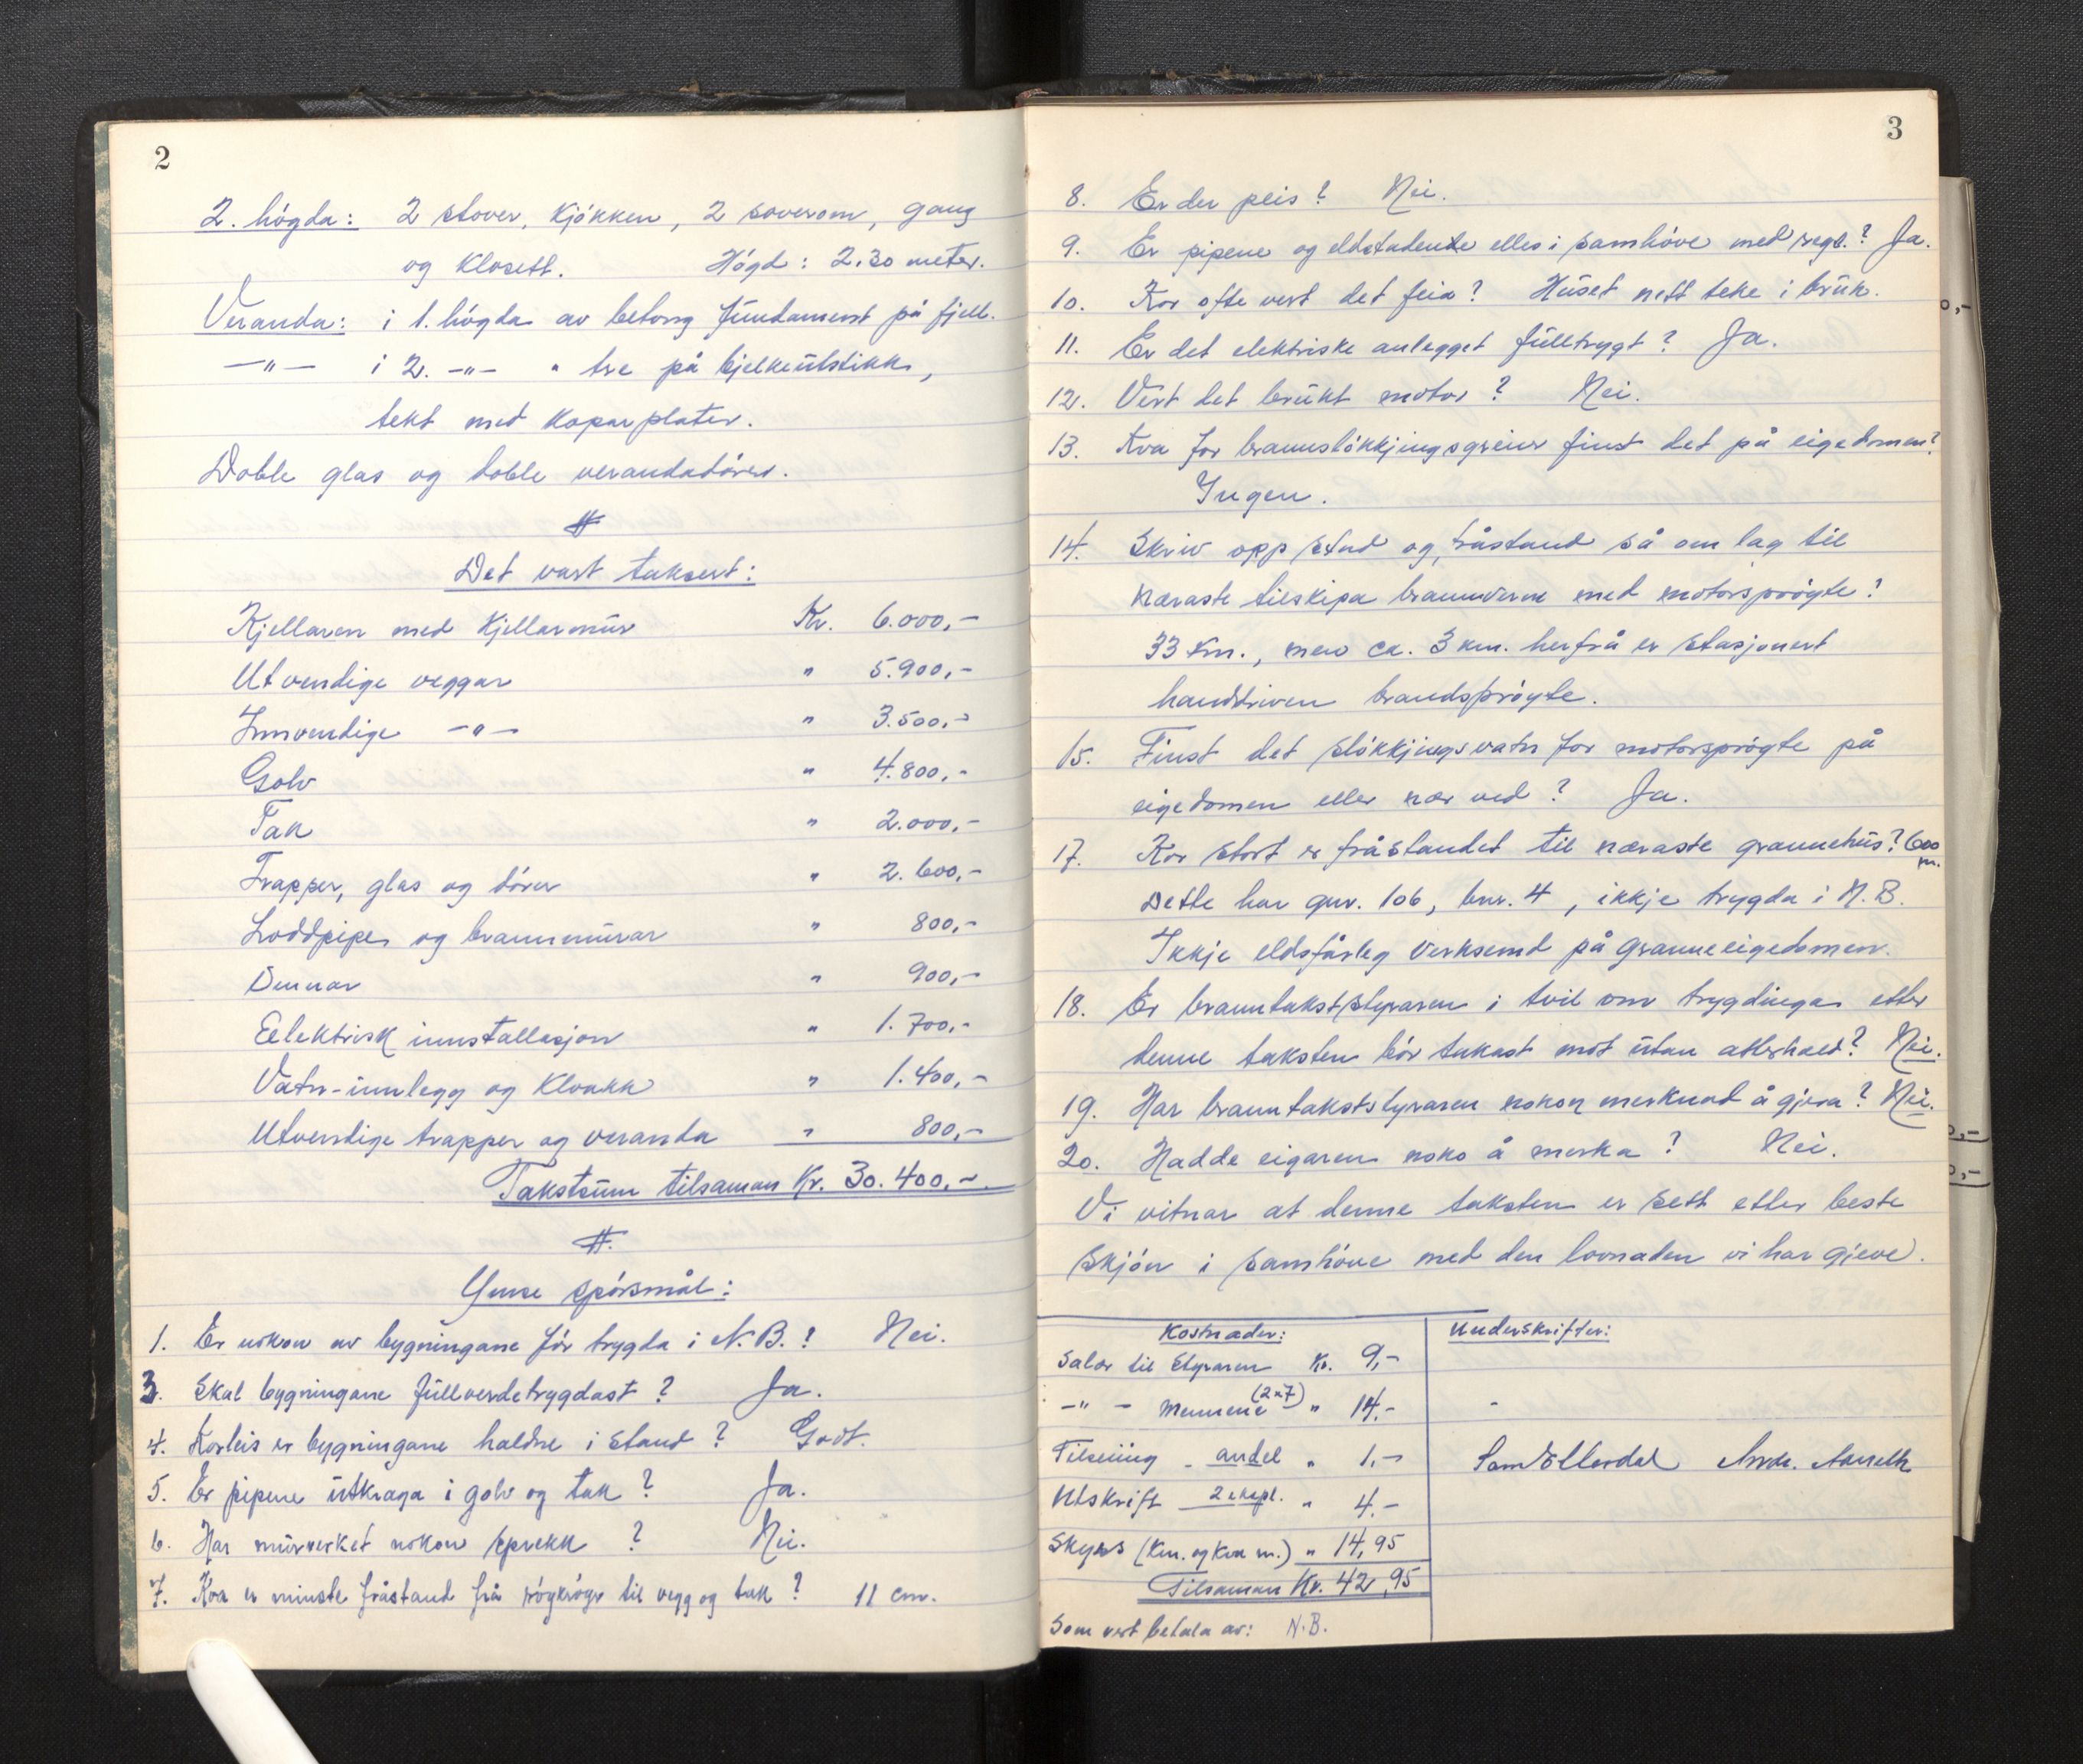 2
2. högda: 2 stover, kjökken, 2 soverom, gang
og klosett. Högd: 2.30 meter.
Veranda: i 1. högda av betong fundament på fjell.
—"— i 2. —"— " tre på bjelkeutstikk,
tekt med koparplater.
Doble glas og doble verandadörer.
#
Det vart taksert:
Kjellaren med kjellarmur Kr. 6.000,-
Utvendige veggar " 5.900,-
Innvendige —"— " 3.500,-
Golv " 4.800,-
Tak " 2.000,-
Trapper, glas og dörer " 2.600,-
Loddpiper og brannmurar " 800,-
Omnar " 900,-
Eelektrisk innstallasjon " 1.700,-
Vatn-innlegg og kloakk " 1.400,-
Utvendige trapper og veranda " 800,-
Takstsum tilsaman Kr. 30.400,-.
#.
Ymse spörsmål:
1. Er nokon av bygningane för trygda i N.B.? Nei.
3. Skal bygningane fullverdetrygdast? Ja.
4. Korleis er bygningane haldne i stand? Godt.
5. Er pipene utkraga i golv og tak? Ja.
6. Har murverket nokon sprekk ? Nei.
7. Kva er minste fråstand frå röykröyr til vegg og tak? 11 cm.
3
8. Er der peis? Nei.
9. Er pipene og eldstadene elles i samhöve med regl.? Ja.
10. Kor ofte vert det feia? Huset nett teke i bruk.
11. Er det elektriske anlegget fulltrygt? Ja.
12. Vert det brukt motor? Nei.
13. Kva for brannslökkjingsgreier finst det på eigedomen?
Ingen.
14. Skriv opp stad og fråstand så om lag til
næraste tilskipa brannvern med motorspröyte?
33 km., men ca. 3 km. herfrå er stasjonert
handdriven brandspröyte.
15. Finst det slökkjingsvatn for motorspröyte på
eigedomen eller nær ved? Ja.
17. Kor stort er fråstandet til næraste grannehus? 600 m.
Dette har gnr. 106, bnr. 4, ikkje trygda i N.B.
Ikkje eldsfårleg verksemd på granneeigedomen.
18. Er branntakststyraren i tvil om trygdinga etter
denne taksten bör takast mot utan atterhald? Nei.
19. Har branntakststyraren nokon merknad å gjera? Nei.
20. Hadde eigaren noko å merka? Nei.
Vi vitnar at denne taksten er sett etter beste
skjön i samhöve med den lovnaden vi har gjeve.
Kostnader:
Salær til styraren Kr. 9,-
—"— mennene (2x7) " 14,-
Tilseiing - andel " 1.-
Utskrift 2 ekspl. " 4.-
Skyss (km. og kva m.) " 14,95
Tilsaman Kr. 42,95
Som vert betala av: N.B.
Underskrifter: